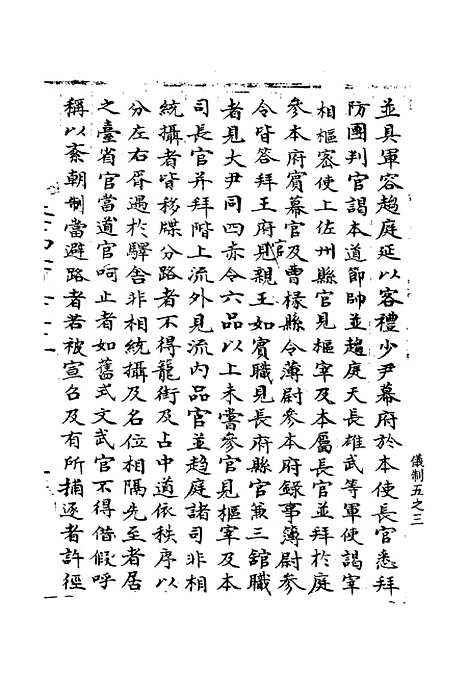 並具軍容趨庭延以客禮少尹幕府於本使長官悉拜
防團判官謁本道節帥並趨庭天長雄武等軍使謁宰
相樞密使上佐州縣官見樞宰及本屬長官並拜於庭
參本府賓幕官及曹椽縣令簿尉參本府錄事簿尉參
令皆答拜王府官見親王如賓職見長府縣官兼三館職
者見大尹同四赤令六品以上未嘗參官見樞宰及本
司長官并拜階上流外見流內品官並趨庭諸司非相
統攝者皆移牒分路者不得籠街及占中道依秩序以
分左右胥遇於驛舍非相統攝及名位相隔先至者居
之臺省官當道官呵止者如舊式文武官不得借假呼
稱以紊朝制當避路者若被宣召及有所捕逐者許徑
儀制五之三